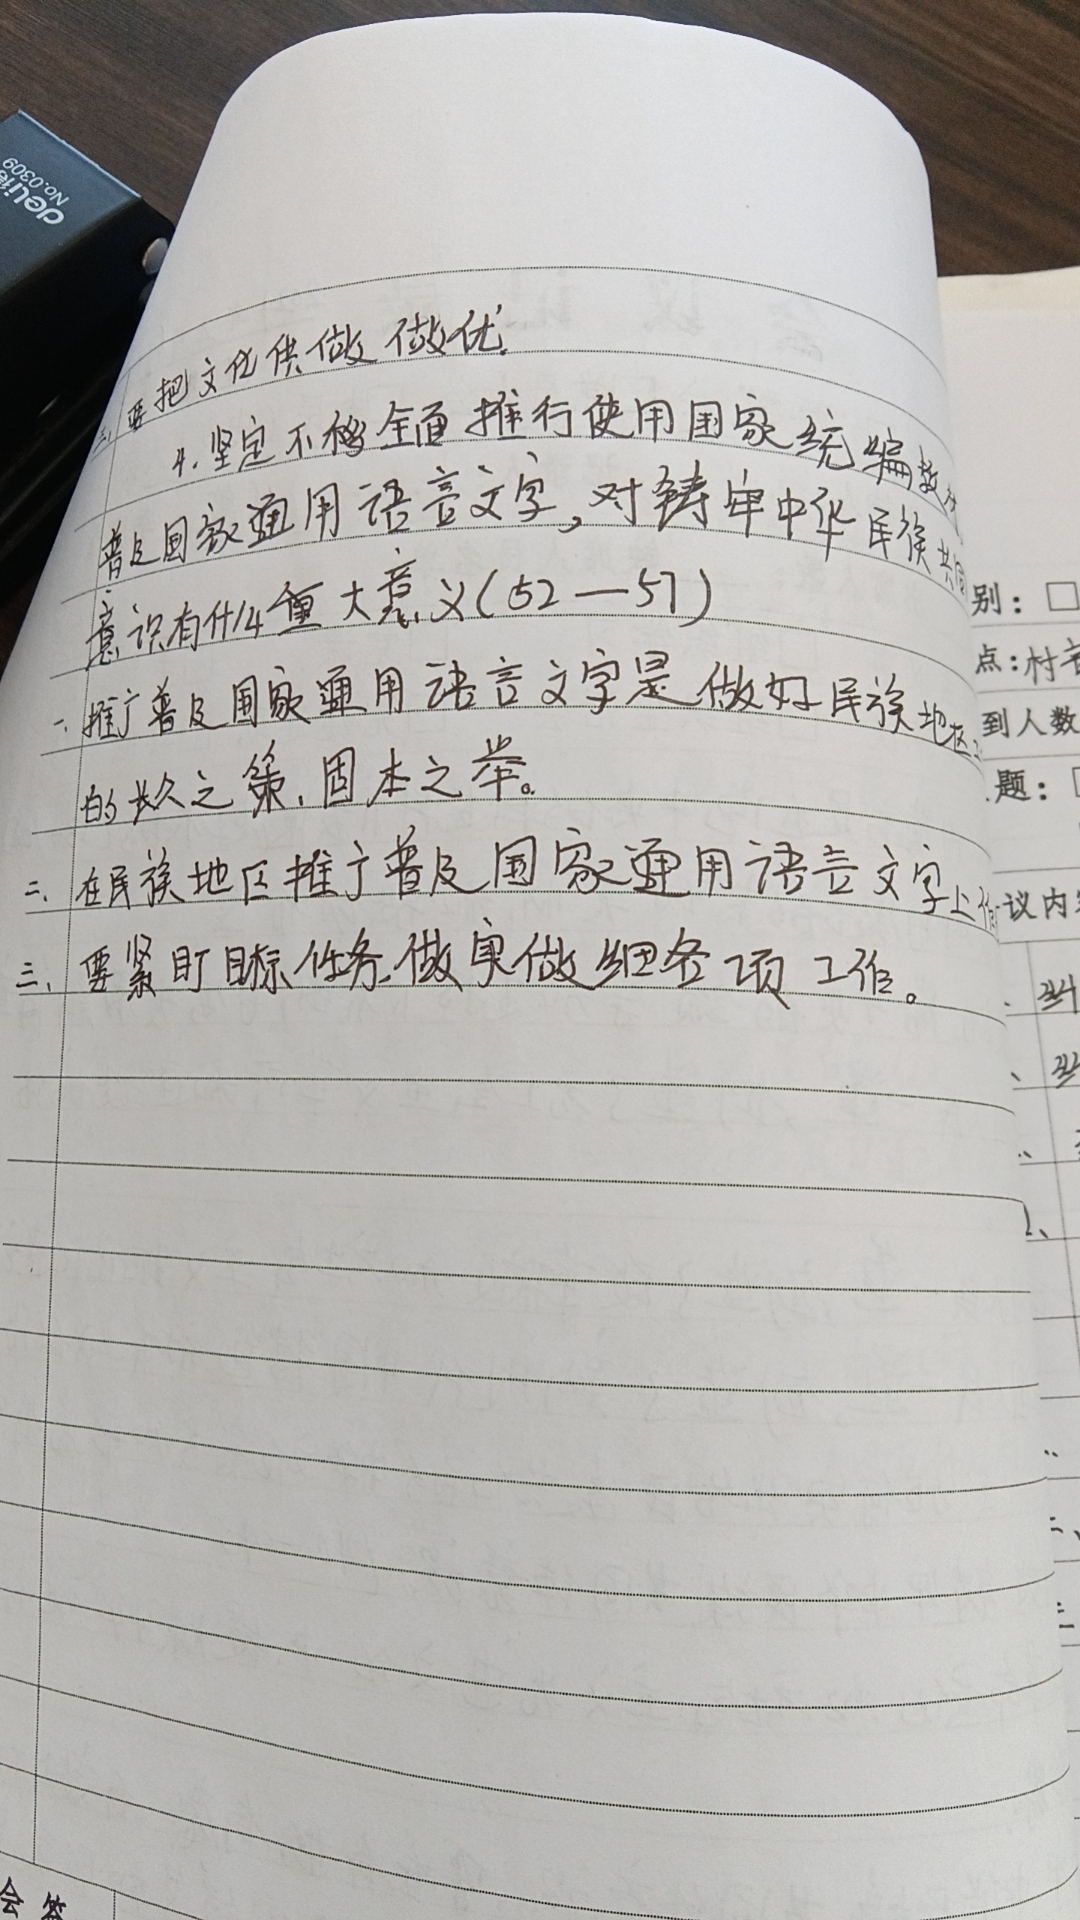 三、要把文化供做 做优.
4.坚定不移全面推行使用国家统编教
普及国家通用语言文字,对铸牢中华民族共同
意识有什么重大意义(52—57)
一、推广普及国家通用语言文字是做好民族地区
的长久之策、固本之举。
二、在民族地区推广普及国家通用语言文字上
三、要紧盯目标任务.做实做细各项工作。
别:□
点:村
到人数
题:
议内
deli
No.0309
会